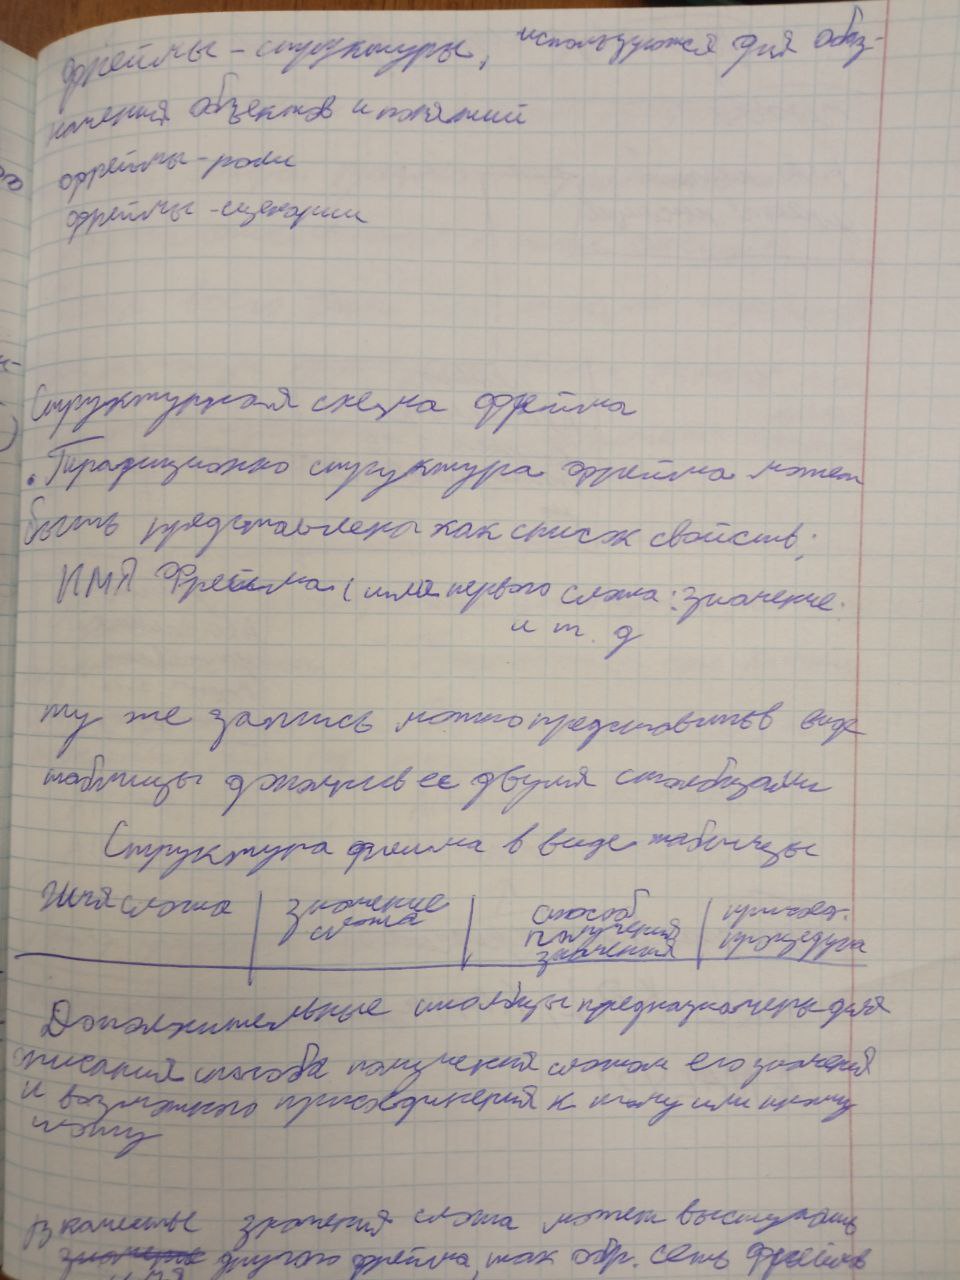 фреймы-структуры, используются для обоз-
начения объектов и понятий
фреймы-роли
фреймы-сценарии
Структурная схема фрейма
. Традиционно структура фрейма может
быть представлена как список свойств:
ИМЯ Фрейма (имя первого слота: значение.
и т. д
ту же запись можно представить в виде
таблицы дополнив ее двумя столбцами
Структура фрейма в виде таблицы
Имя слота | значение слота | способ получения значения | присоед. процедура
Дополнительные столбцы предназначены для
описания способа получения слотом его значения
и возможного присоединения к тому или иному
слоту
В качестве значения слота может выступать
другого фрейма, так обр. сеть фреймов
имя